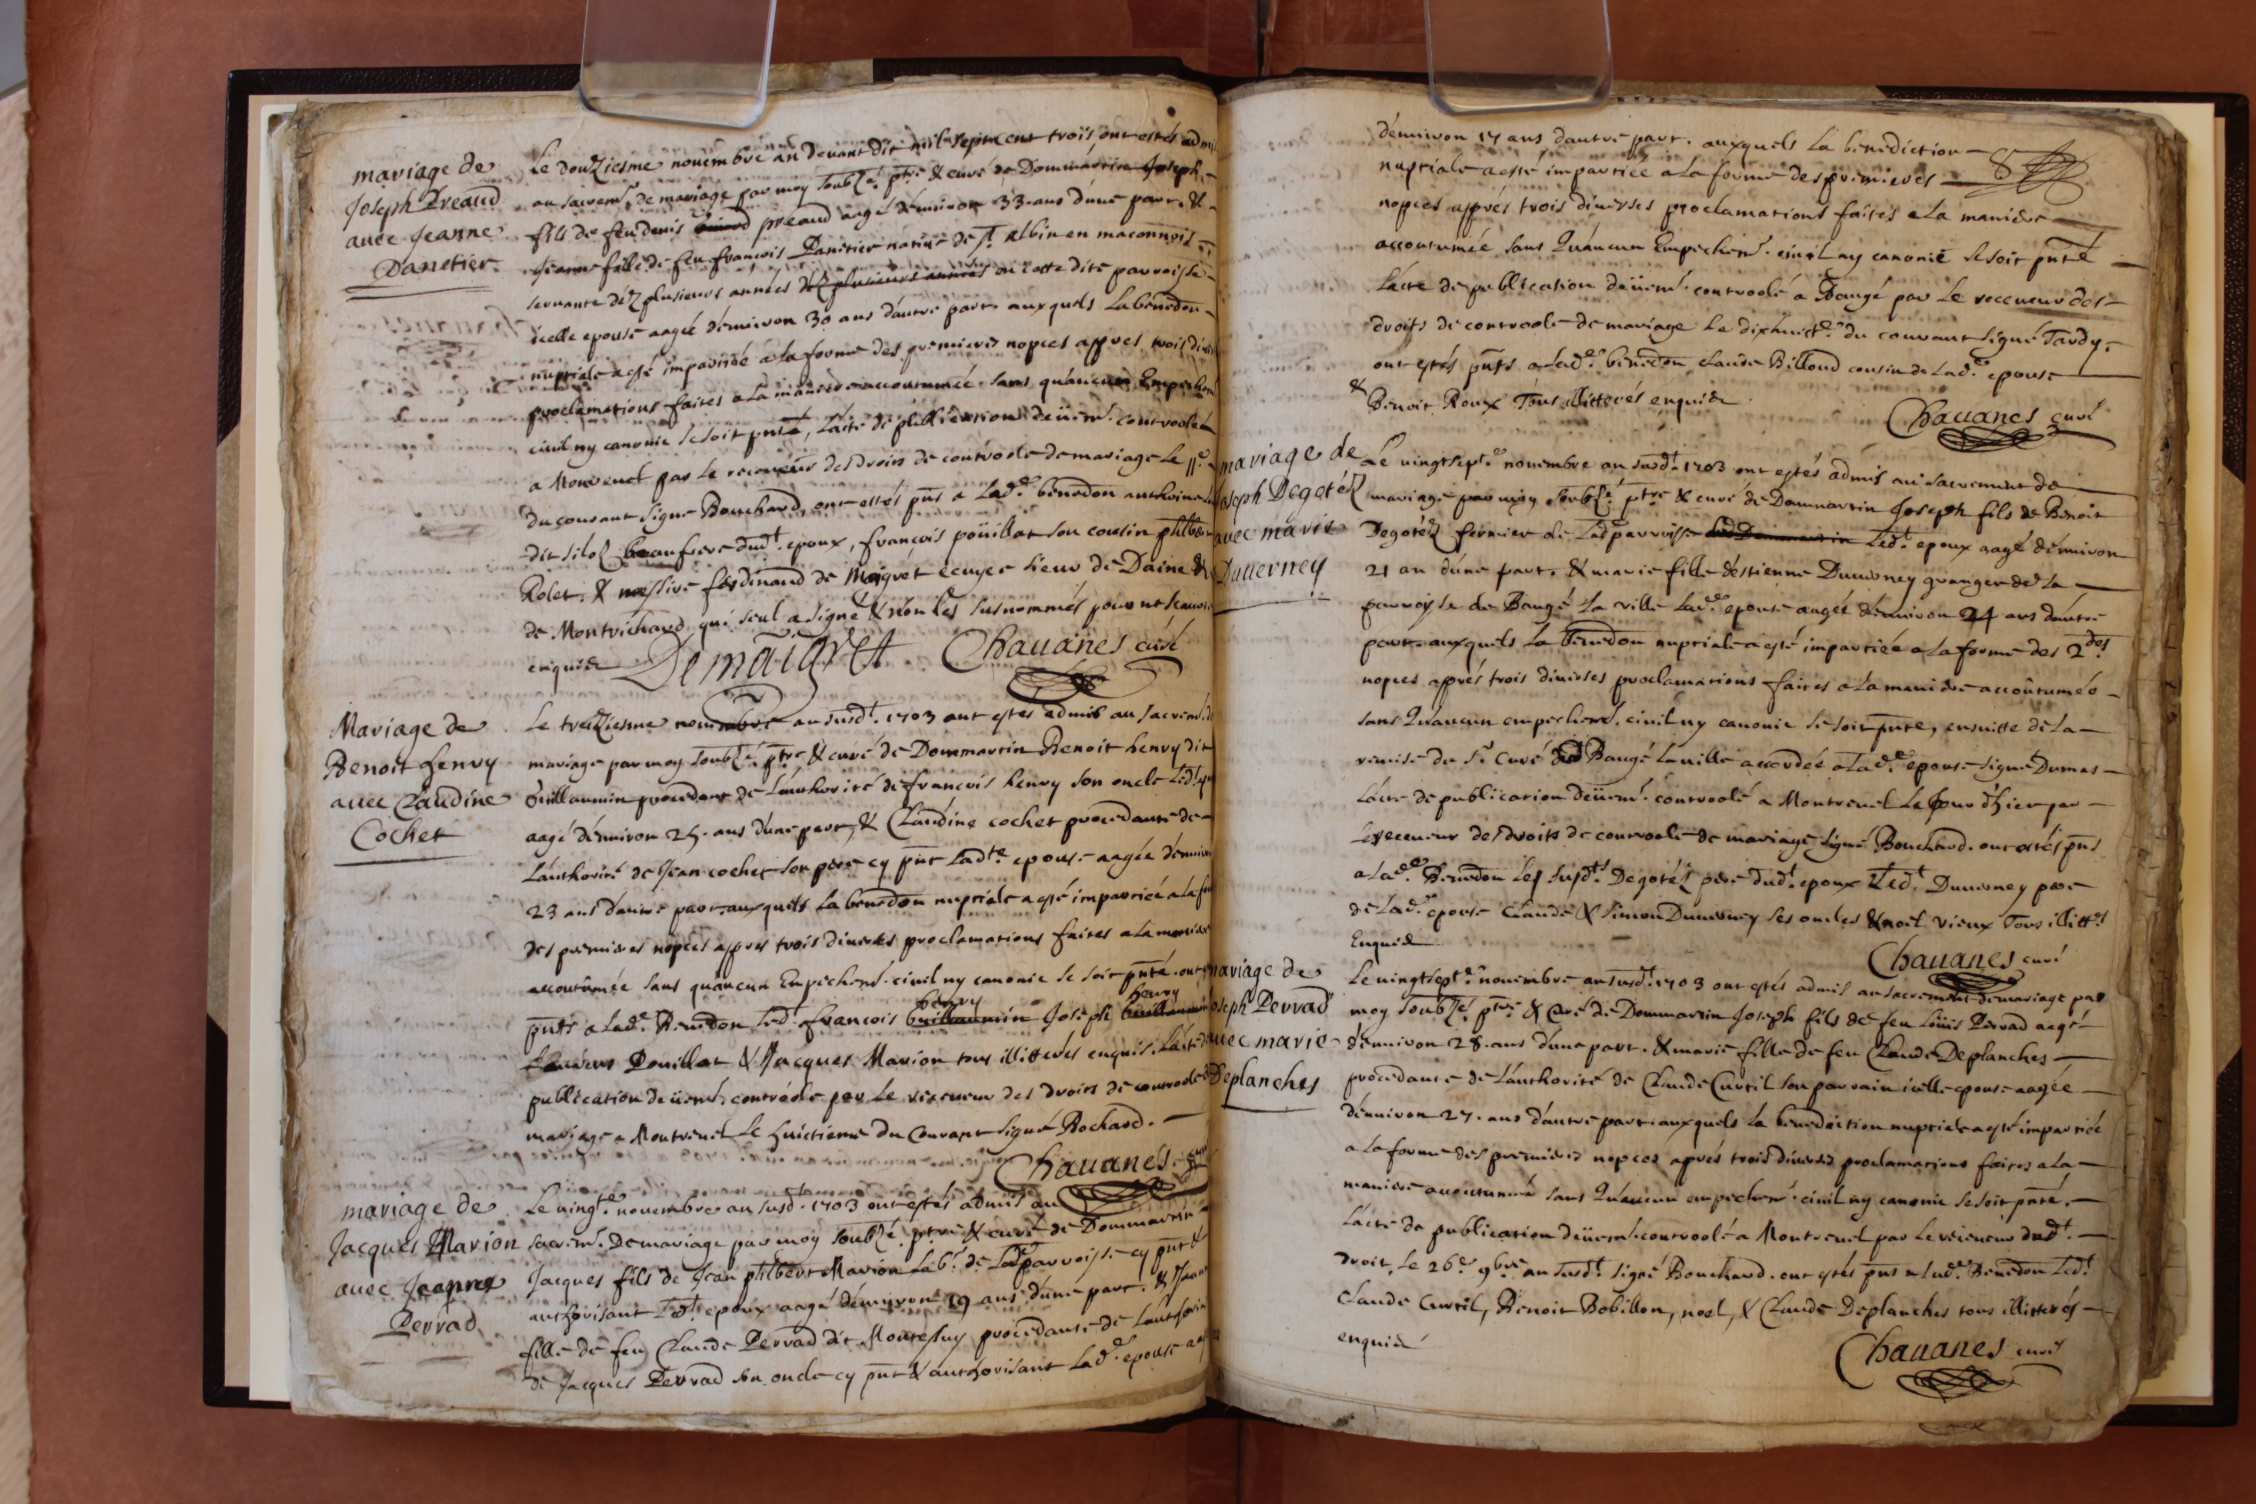 mariage de
Joseph Preaud
auec Jeanne
Danetier
Le douziesme nouembre an deuant dit mil sept cent trois, ont estés admis
au sacremt. de mariage par moy soubzé. ptre & curé de Dommartin Joseph
fils de feu denis preaud aagé d'enuiron 33 ans d'une part, &
Jeanne fille de feu francois Danetier natiue de st. Albin en maconnois
seruante déz plusieurs années déz plusieurs années en cette dite parroisse
icelle epouse aagée d'enuiron 30 ans d'autre part, auxquels la benedon
nuptiale a esté impartiée a la forme des premieres nopces appres trois
proclamations faites a la maniere accoutumée sans qu'aucun Empechemt
ciuil ny canonic se soit pnté, l'acte de publication deüemt. controolé
a Montreuel par le receueur des droits de controole de mariage le 11e
du courant signé Bouchard, ont estés pnts a lade. benedon anthoine
dit siloz beaufrere dudt. epoux, françois poüillat son cousin philbert
Rolet, & messire ferdinand de Maigret ecuyer sieur de Daine &
de Montrichard qui seul a signé & non les susnommés pour ne scauoir
enquis Demaigret Chauanes curé
Mariage de
Benoit henry
auec Claudine
Cochet
Le treiziesme nouembre an susdt. 1703 ont estes admis au sacremt. de
mariage par moy soubzé. ptre & curé de Dommartin Benoit henry dit
Guillaumin procedant de l'authorité de francois henry son oncle ledt.
aagé d'enuiron 25 ans d'une part, & Claudine cochet procedante de
l'authorité de Jean cochet son pere cy pnt ladte epouse aagée d'enuiron
23 ans d'autre part, auxquels la benedon nuptiale a esté impartiée a la
des premieres nopces appres trois diuerses proclamations faites a la maniere
accoutumée sans qu'aucun Empechemt. ciuil ny canonic se soit pnté. ont
henry henry
pnts a lade. Benedon ledt. francois Guillaumin Joseph Guillaumin
Pouillat & Jacques Marion tous illitterés enquis. l'acte de
publication deüemt. controole par le receueur des droits de controole de
mariage a Montreuel le huictieme du courant signé Bochard.
Chauanes curé
mariage de
Jacques Marion
auec Jeanne
Perrad
Le uingte. nouembre an susdt. 1703 ont estés admis au
sacremt. De mariage par moy soubzé. ptre & curé de Dommartin
Jacques fils de Jean philbert Marion labr. de lade parroisse cy pnt &
authorisant ledt. epoux aagé d'enuiron 19 ans d'une part. & Jeanne
fille de feu Claude Perrad dit Montessuy procedante de l'authorité
de Jacques Perrad son oncle cy pnt & authorisant lade. epouse
d'enuiron 17 ans d'autre part. auxquels la benediction
nuptiale a esté impartiée a la forme des premieres
nopces apprés trois diuerses proclamations faites a la maniere
accoutumée sans qu'aucun Empechemt. ciuil ny canonic se soit pnté
L'acte de publication deüemt. controolé a Baugé par le receueur des
droits de controole de mariage le dixhuicte. du courant signé Tardy,
ont estés pnts a lade. benedon Claude Billoud cousin de lade. epouse
& Benoit Roux Tous illitterés enquis
Chauanes curé
mariage de
Joseph Degotéz
auec marie
Duuerney
Le uingtsepte. nouembre an susdt. 1703 ont estés admis au sacrement de
mariage par moy soubzé. ptre & curé de Dommartin Joseph fils de Benoit
Degotéz fermier de lade parroisse de Dommartin ledt. epoux aagé d'enuiron
21 an d'une part, & marie fille d'estienne Duuerney granger de la
parroysse de Baugé la ville lade. epouse aagée d'enuiron 24 ans d'autre
part. auxquels la benedon nuptiale a esté impartiée a la forme des 2des
nopces apprés trois diuerses proclamations faites a la maniere accoûtumée
sans qu'aucun empechemt. ciuil ny canonic se soit pnté, ensuitte de la
remise du sr. Curé de Baugé la uille accordée a lade. epouse signé Dumas
l'acte de publication deüemt. controolé a Montreuel le jour d'hier par
le receueur des droits de controole de mariage signé Bouchard. ont estés pnts
a lade. Benedon les susdt. Degotéz pere dudt. epoux & ledt. Duuerney pere
de lade. epouse Claude & Simon Duuerney ses oncles & noel Vieux Tous illittes
Enquis
Chauanes curé
mariage de
Joseph Perrad
auec marie
Deplanches
Le uingtsepte. nouembre an susdt. 1703 ont estés admis au sacrement de mariage par
moy soubzé. ptre & Curé de Dommartin Joseph fils de feu Loüis Perrad aagé
d'enuiron 28 ans d'une part. & marie fille de feu Claude Deplanches
procedante de l'authorité de Claude Curtil son parrain icelle epouse aagée
d'enuiron 27 ans d'autre part. auxquels la benediction nuptiale a esté impartiée
a la forme des premieres nopces aprés trois diuerses proclamations faites a la
maniere accoutumée sans qu'aucun empechemt. ciuil ny canonic se soit pnté.
l'acte de publication deüemt. controolé a Montreuel par le receueur dudt.
droit, le 26e. 9bre an susdt. signé Bouchard. ont estés pnts a lade. Benedon ledt.
Claude Curtil, Benoit Bobillon, noel, & Claude Deplanches tous illitterés
enquis
Chauanes curé